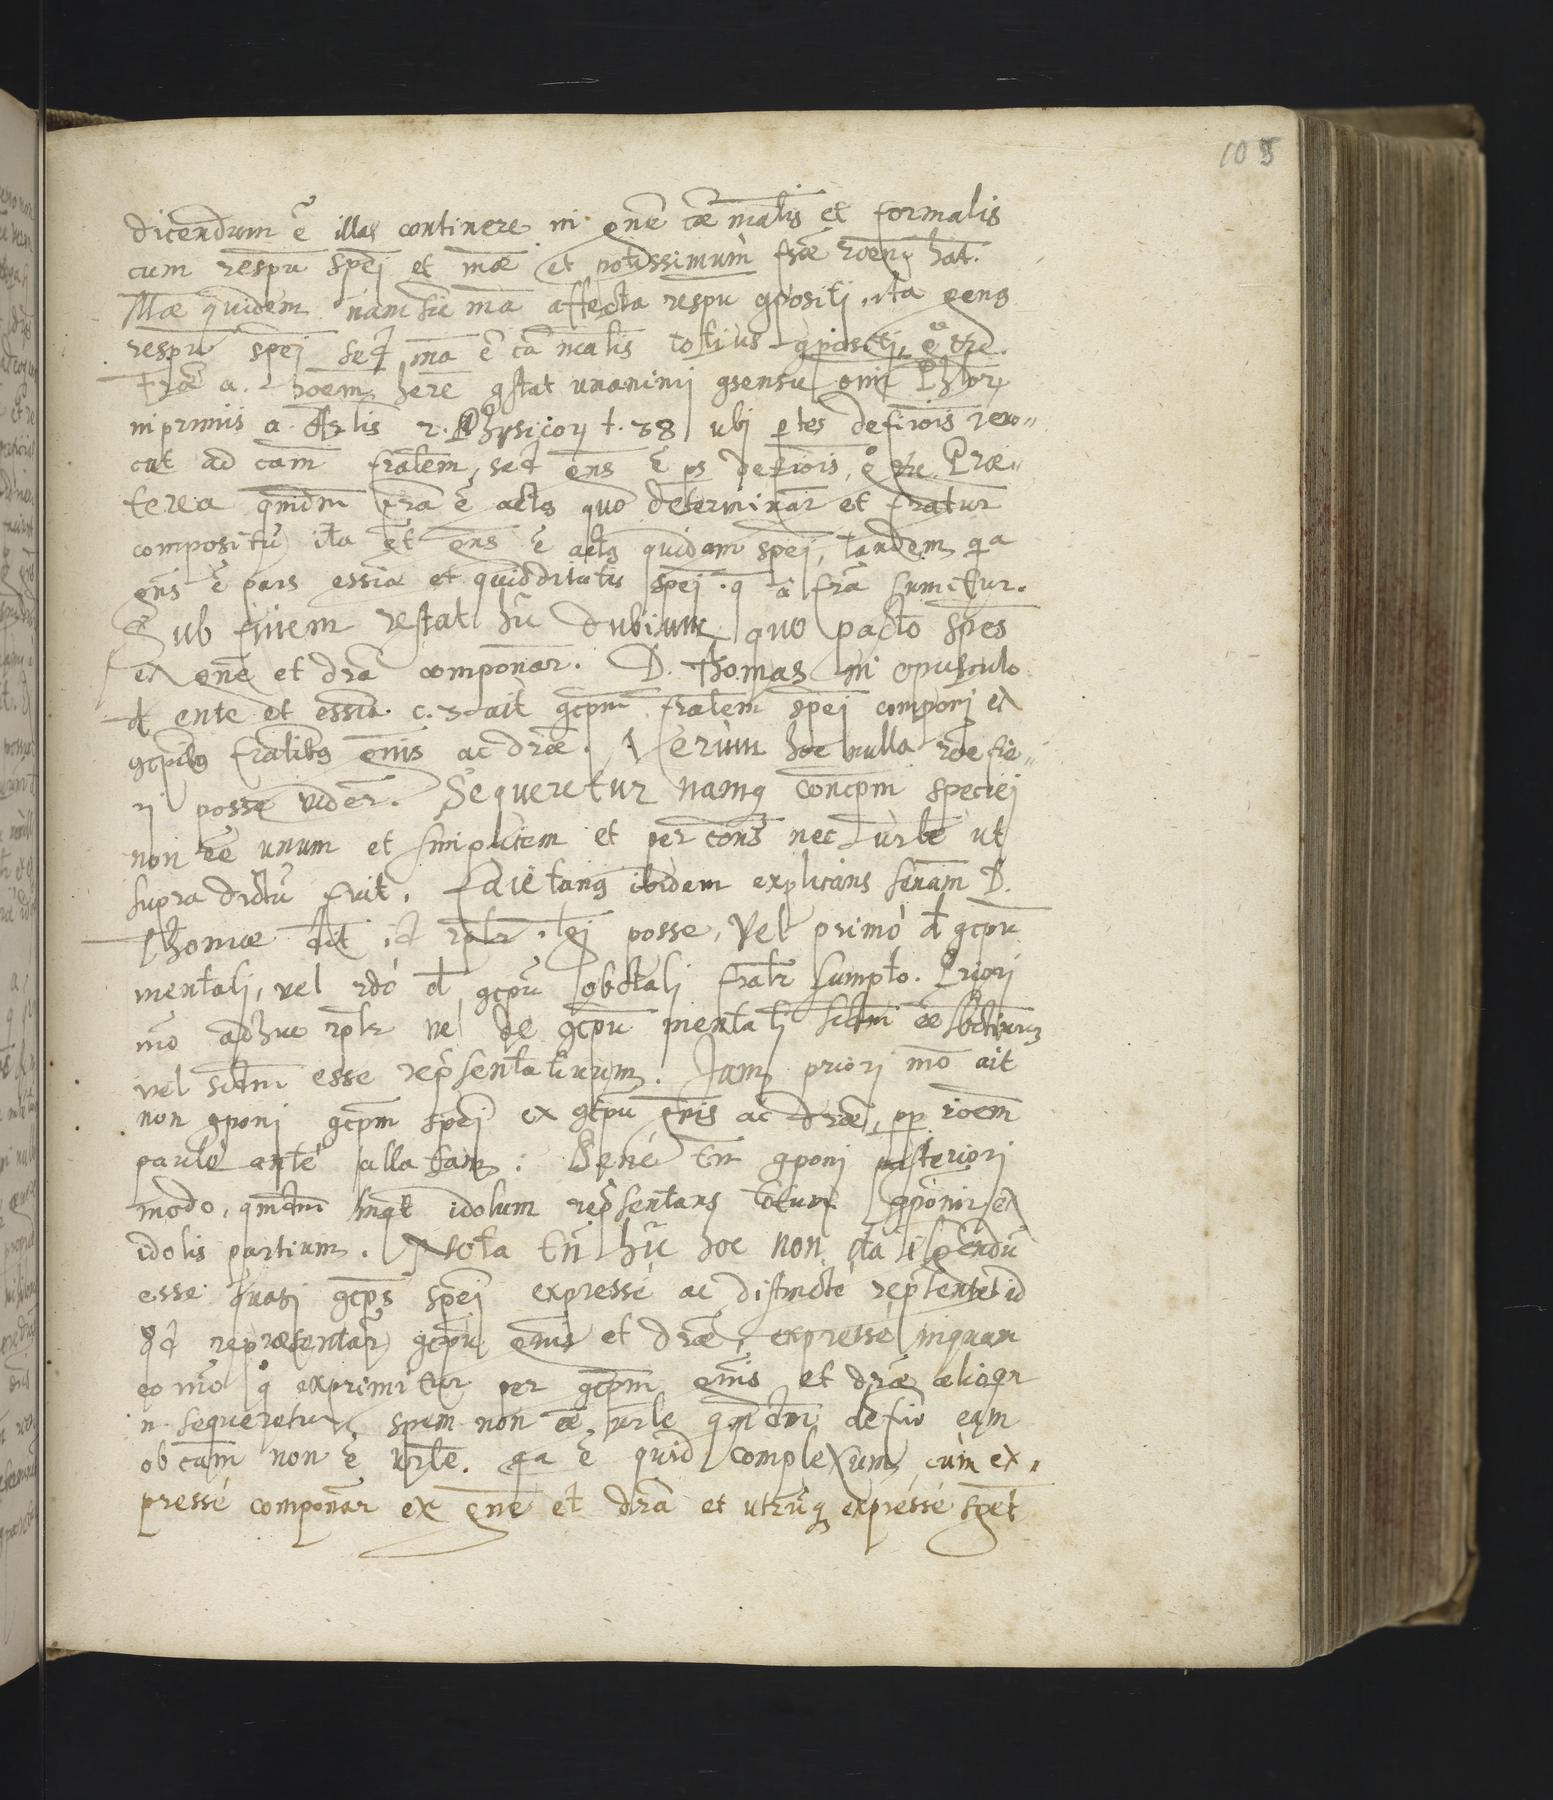 105
dicendum ē illas continere in gn̄e cāe mālis et formalis
cum respū spēi et māe et potissimum frāe roēm hāt.
Māe quidem nam sic mā affecta respū gpositi, ita gens
respū spēi sed mā ē cā mālis totius gpositi, g° etc.
frāe a. roēm hēre gstat unanimi gsensu om̄i Phōr
inprimis a. Arlis 2. Physicor t. 38 ubi ptes defiōis revo
cat ad cām frālem, sed gn̄s ē ps defiōis, g° etc. Præ
terea qm̄dm frā ē acts quo determinār et frātur
compositū ita et gn̄s ē acts quidam spēi, tandem qa
gn̄s ē pars essiæ et quidditatis spēi. q a frā sumitur.
Sub finem restat hīc dubium quo pacto spēs
ex gn̄e et drā componār. D. Thomas in opusculo
d ente et essia c. 3 ait gcpm frālem spēi componi ex
gcptis frālibs gn̄is ac dræ. Verum hoc nulla rōe fie
ri posse vidēr. Sequeretur namq concpm speciei
non ēe unum et simplicem et per cons̄ nec urle ut
supra dictū fuit. Caietans ibidem explicans sen̄am D.
Thomæ ait id rplr itgi posse, vel primò d gcpū
mentali, vel 2dó d gcpū obctali frālr sumpto. Priori
mō adhuc rplr vel de gcpū mentali scdm ēe sbctivum
vel scdm esse repr̄sentativum. Jam priori mō ait
non gponi gcpm spēi ex gcpū gn̄is ac dræ, pp roēm
paulò antè allatam: Benè tn̄ gponi posteriori
modo, qm̄dm inqt idolum repr̄sentans totum gponir ex
idolis partium. Nota tn̄ hīc hoc non ita itgendū
esse quasi gcps spēi expressè ac distinctè repr̄sentet id
qd repræsentār gcpū gn̄is et dræ, expressè inquam
eo mō q° exprimitur per gcpm gn̄is et dræ alioqn
n. sequeretur spēm non ēe urle qm̄dm defiō eam
ob cām non ē urle. qa ē quid complexum, cùm ex
pressè componār ex gn̄e et drā et utrūq expressè sgēt